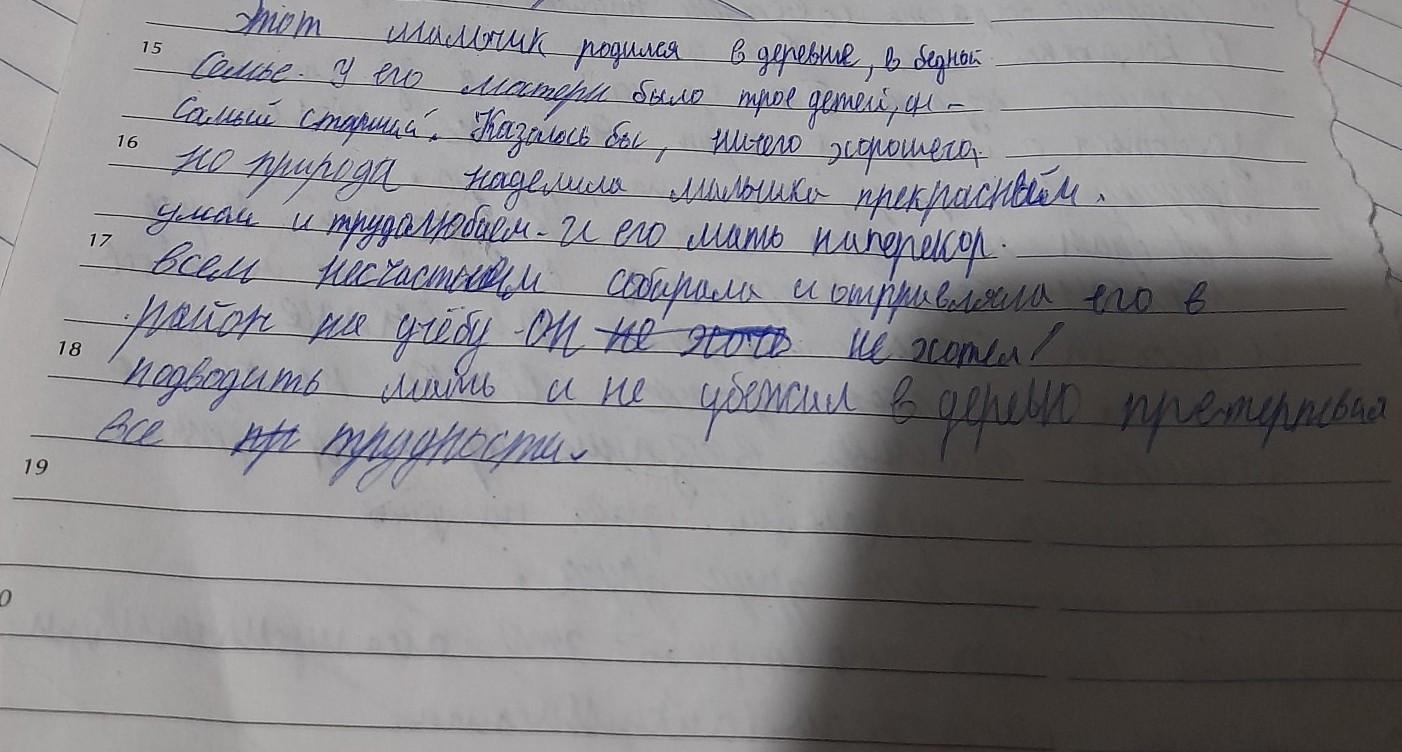 Этот мальчик родился в деревне, в бедный
15
семье. У его матери было трое детей, он -
самый старший. Казалось бы, ничего хорошего,
16
но природа наделила мальчика прекрасным
умом и трудолюбием. И его мать наперекор
17
всем несчастьям собирала и отправляла его в
район на учёбу. Он не хоте не хотел
18
подводить мать и не убежил в деревю претерпевая
все пр трудности.
19
0